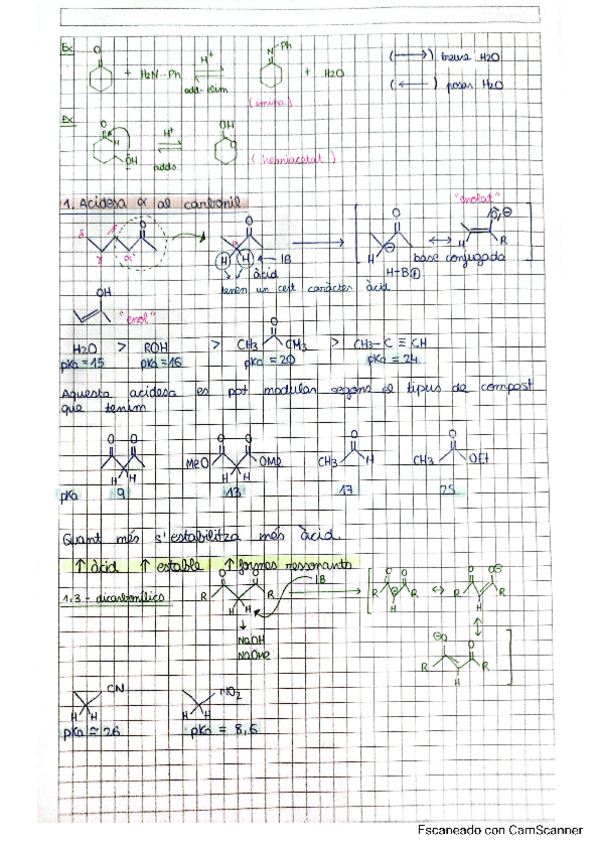 Ex
O
N-Ph
+ H2N-Ph
H⁺
add-elim
+ H2O
(imina)
(⟶) treure H2O
(⟵) posar H2O
Ex
O
H
OH
H⁺
addo
OH
O
(hemiacetal)
1. Acidesa α al carbonil
"enolat"
O
δ γ β α
O
α
H H
IB
àcid
tenen un cert caràcter àcid
O
⊖
H
O⊖
H R
base conjugada
H-B⊕
OH
"enol"
H2O > ROH > CH3 O CH3 > CH3-C≡CH
pka=15 pka=16 pka=20 pka=24
Aquesta acidesa es pot modular segons el tipus de compost
que tenim
O O
H H
MeO O O OMe
H H
CH3 O H
CH3 O OEt
pka 9 13 17 25
Quant més s'estabilitza més àcid.
↑ àcid ↑ estable ↑ formes ressonants
1,3-dicarbonílics
R O O R
H H
IB
NaOH
NaOMe
R O O R
⊖
H
R O O⊖ R
H
⊖O O
R R
H
CN
H H
NO2
H H
pka ≈ 26 pka = 8,6
Escaneado con CamScanner